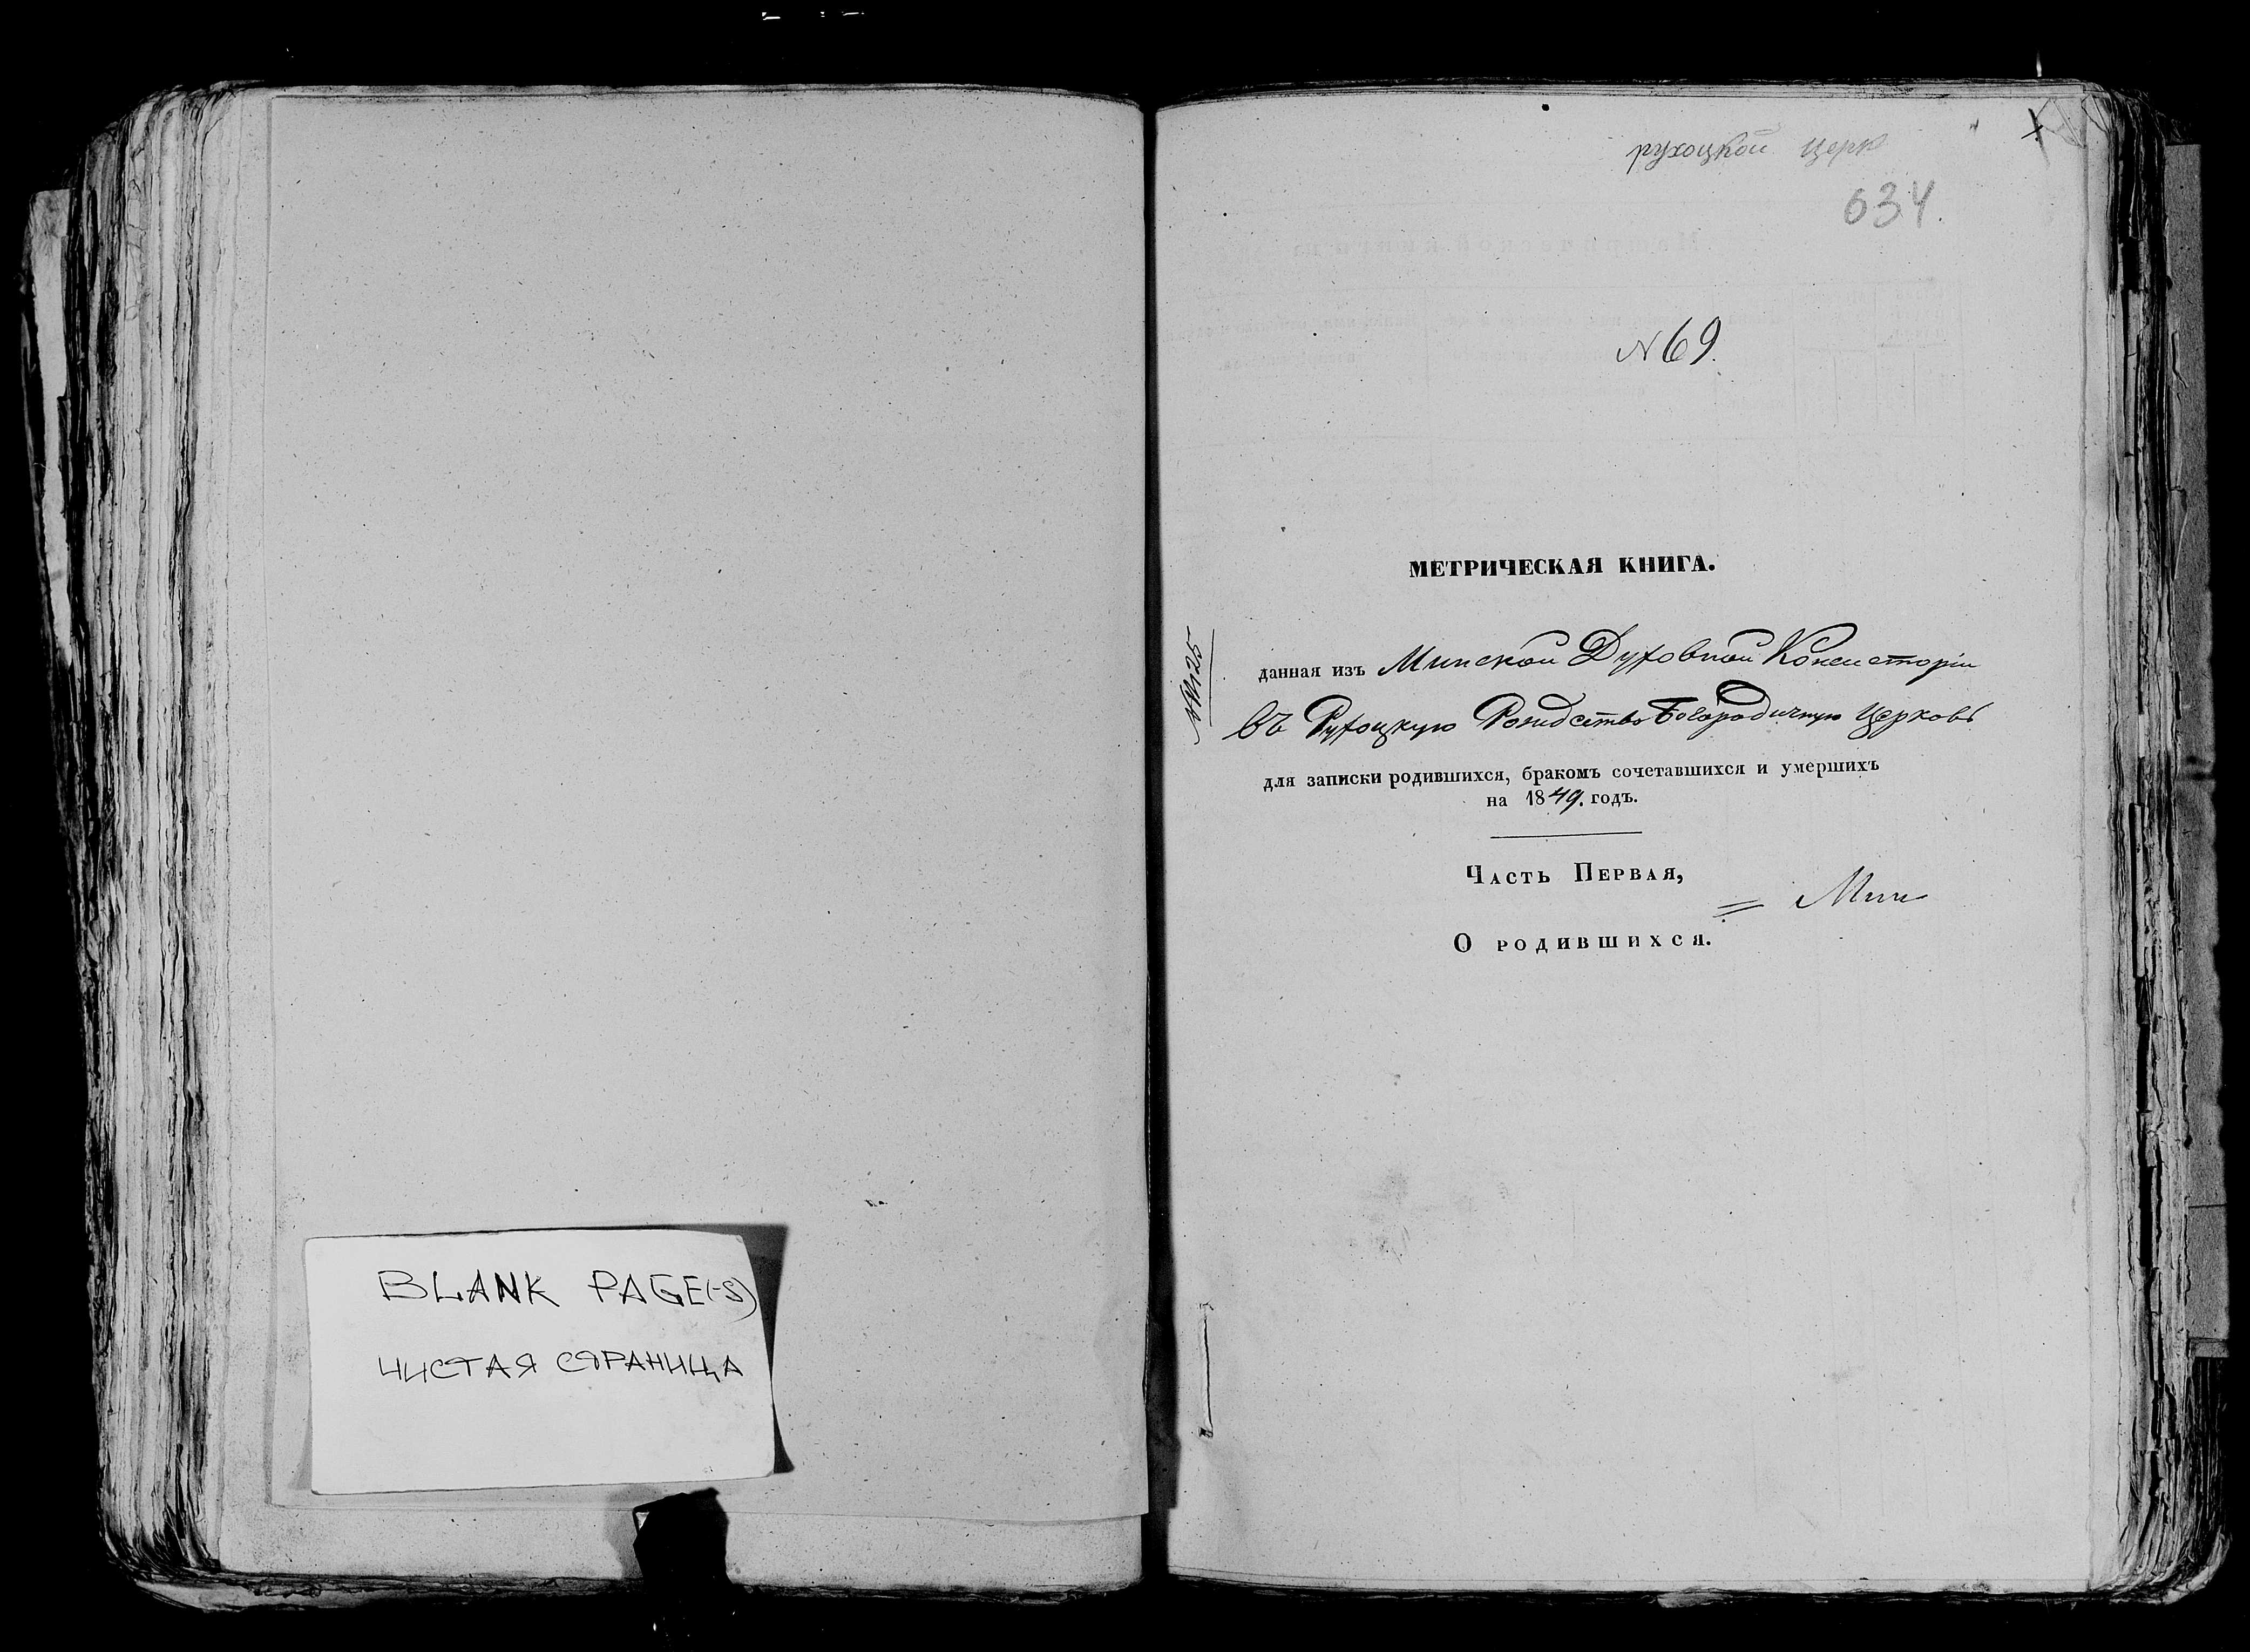 BLANK PAGE(-S)
ЧИСТАЯ СТРАНИЦА
рухоцкой церк
634.
N 69.
МЕТРИЧЕСКАЯ КНИГА.
данная изъ Минской Духовной Консисторіи
въ Рухоцкую Рождество Богородичную Церковь
для записки родившихся, бракомъ сочетавшихся и умершихъ
на 1849. годъ.
Часть Первая,
= Мин
О родившихся.